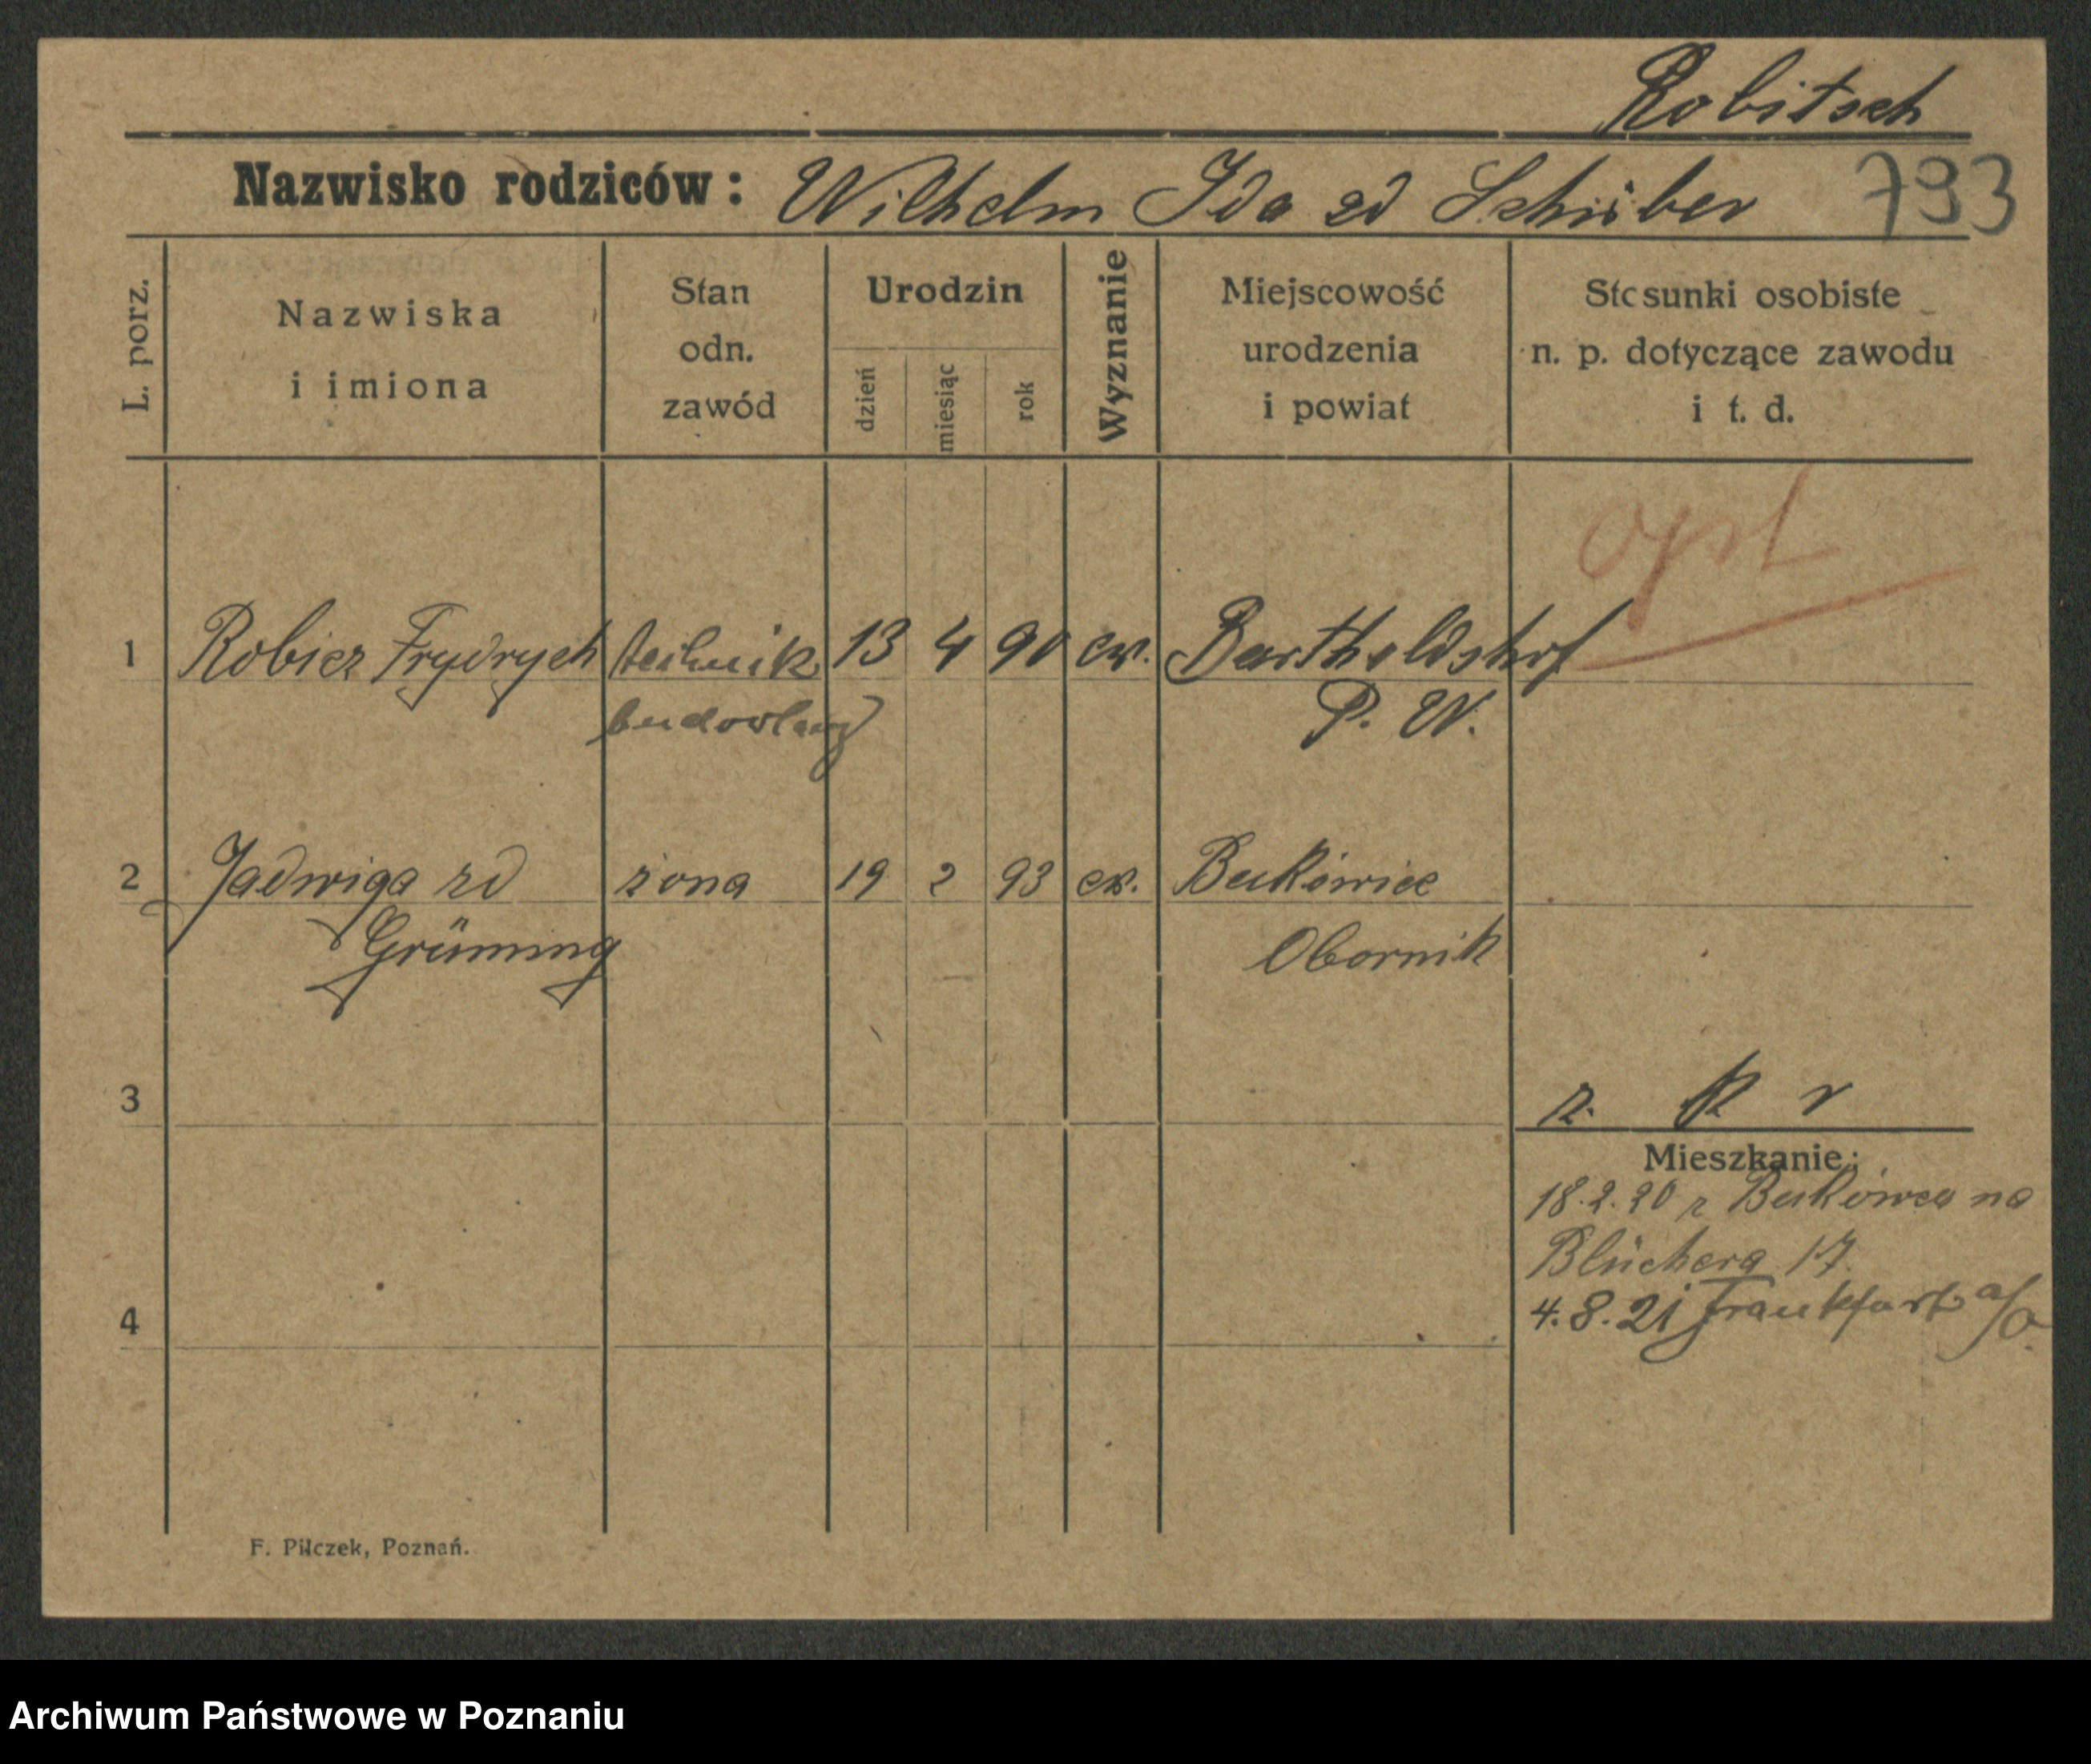 Robitsch
Nazwisko rodziców: Wilhelm Ida zd Schrüber 793
L. porz.
Nazwiska i imiona
Stan odn. zawód
Urodzin
dzień miesiąc rok
Wyznanie
Miejscowość urodzenia i powiat
Stosunki osobiste n. p. dotyczące zawodu i t. d.
opt
1 Robicz Frydrych technik 13 4 90 ew. Bartholdshof
budowlany P. W.
2 Jadwiga zd żona 19 2 93 ew. Bukówiec
Grüning Obornik
3 z. k r
Mieszkanie:
18.2.20 z Bukówca na
Blüchera 17.
4 4.8.21 Frankfurt a/O.
F. Pilczek, Poznań.
Archiwum Państwowe w Poznaniu